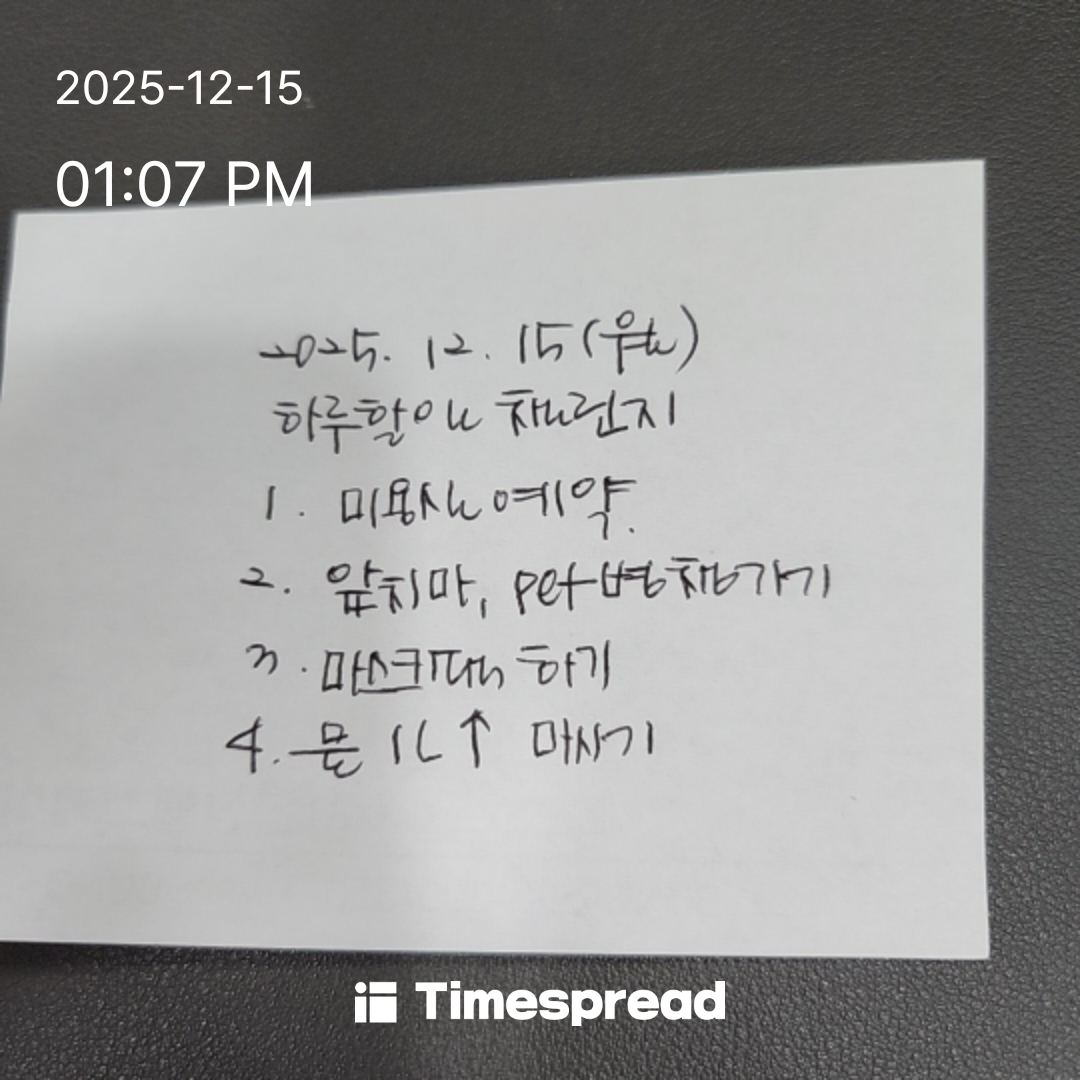 2025-12-15
01:07 PM
2025. 12. 15(월)
하루할일 챌린지
1. 미용실 예약.
2. 앞치마, pet병 챙기기
3. 마스크팩 하기
4. 물 1L↑ 마시기
Timespread